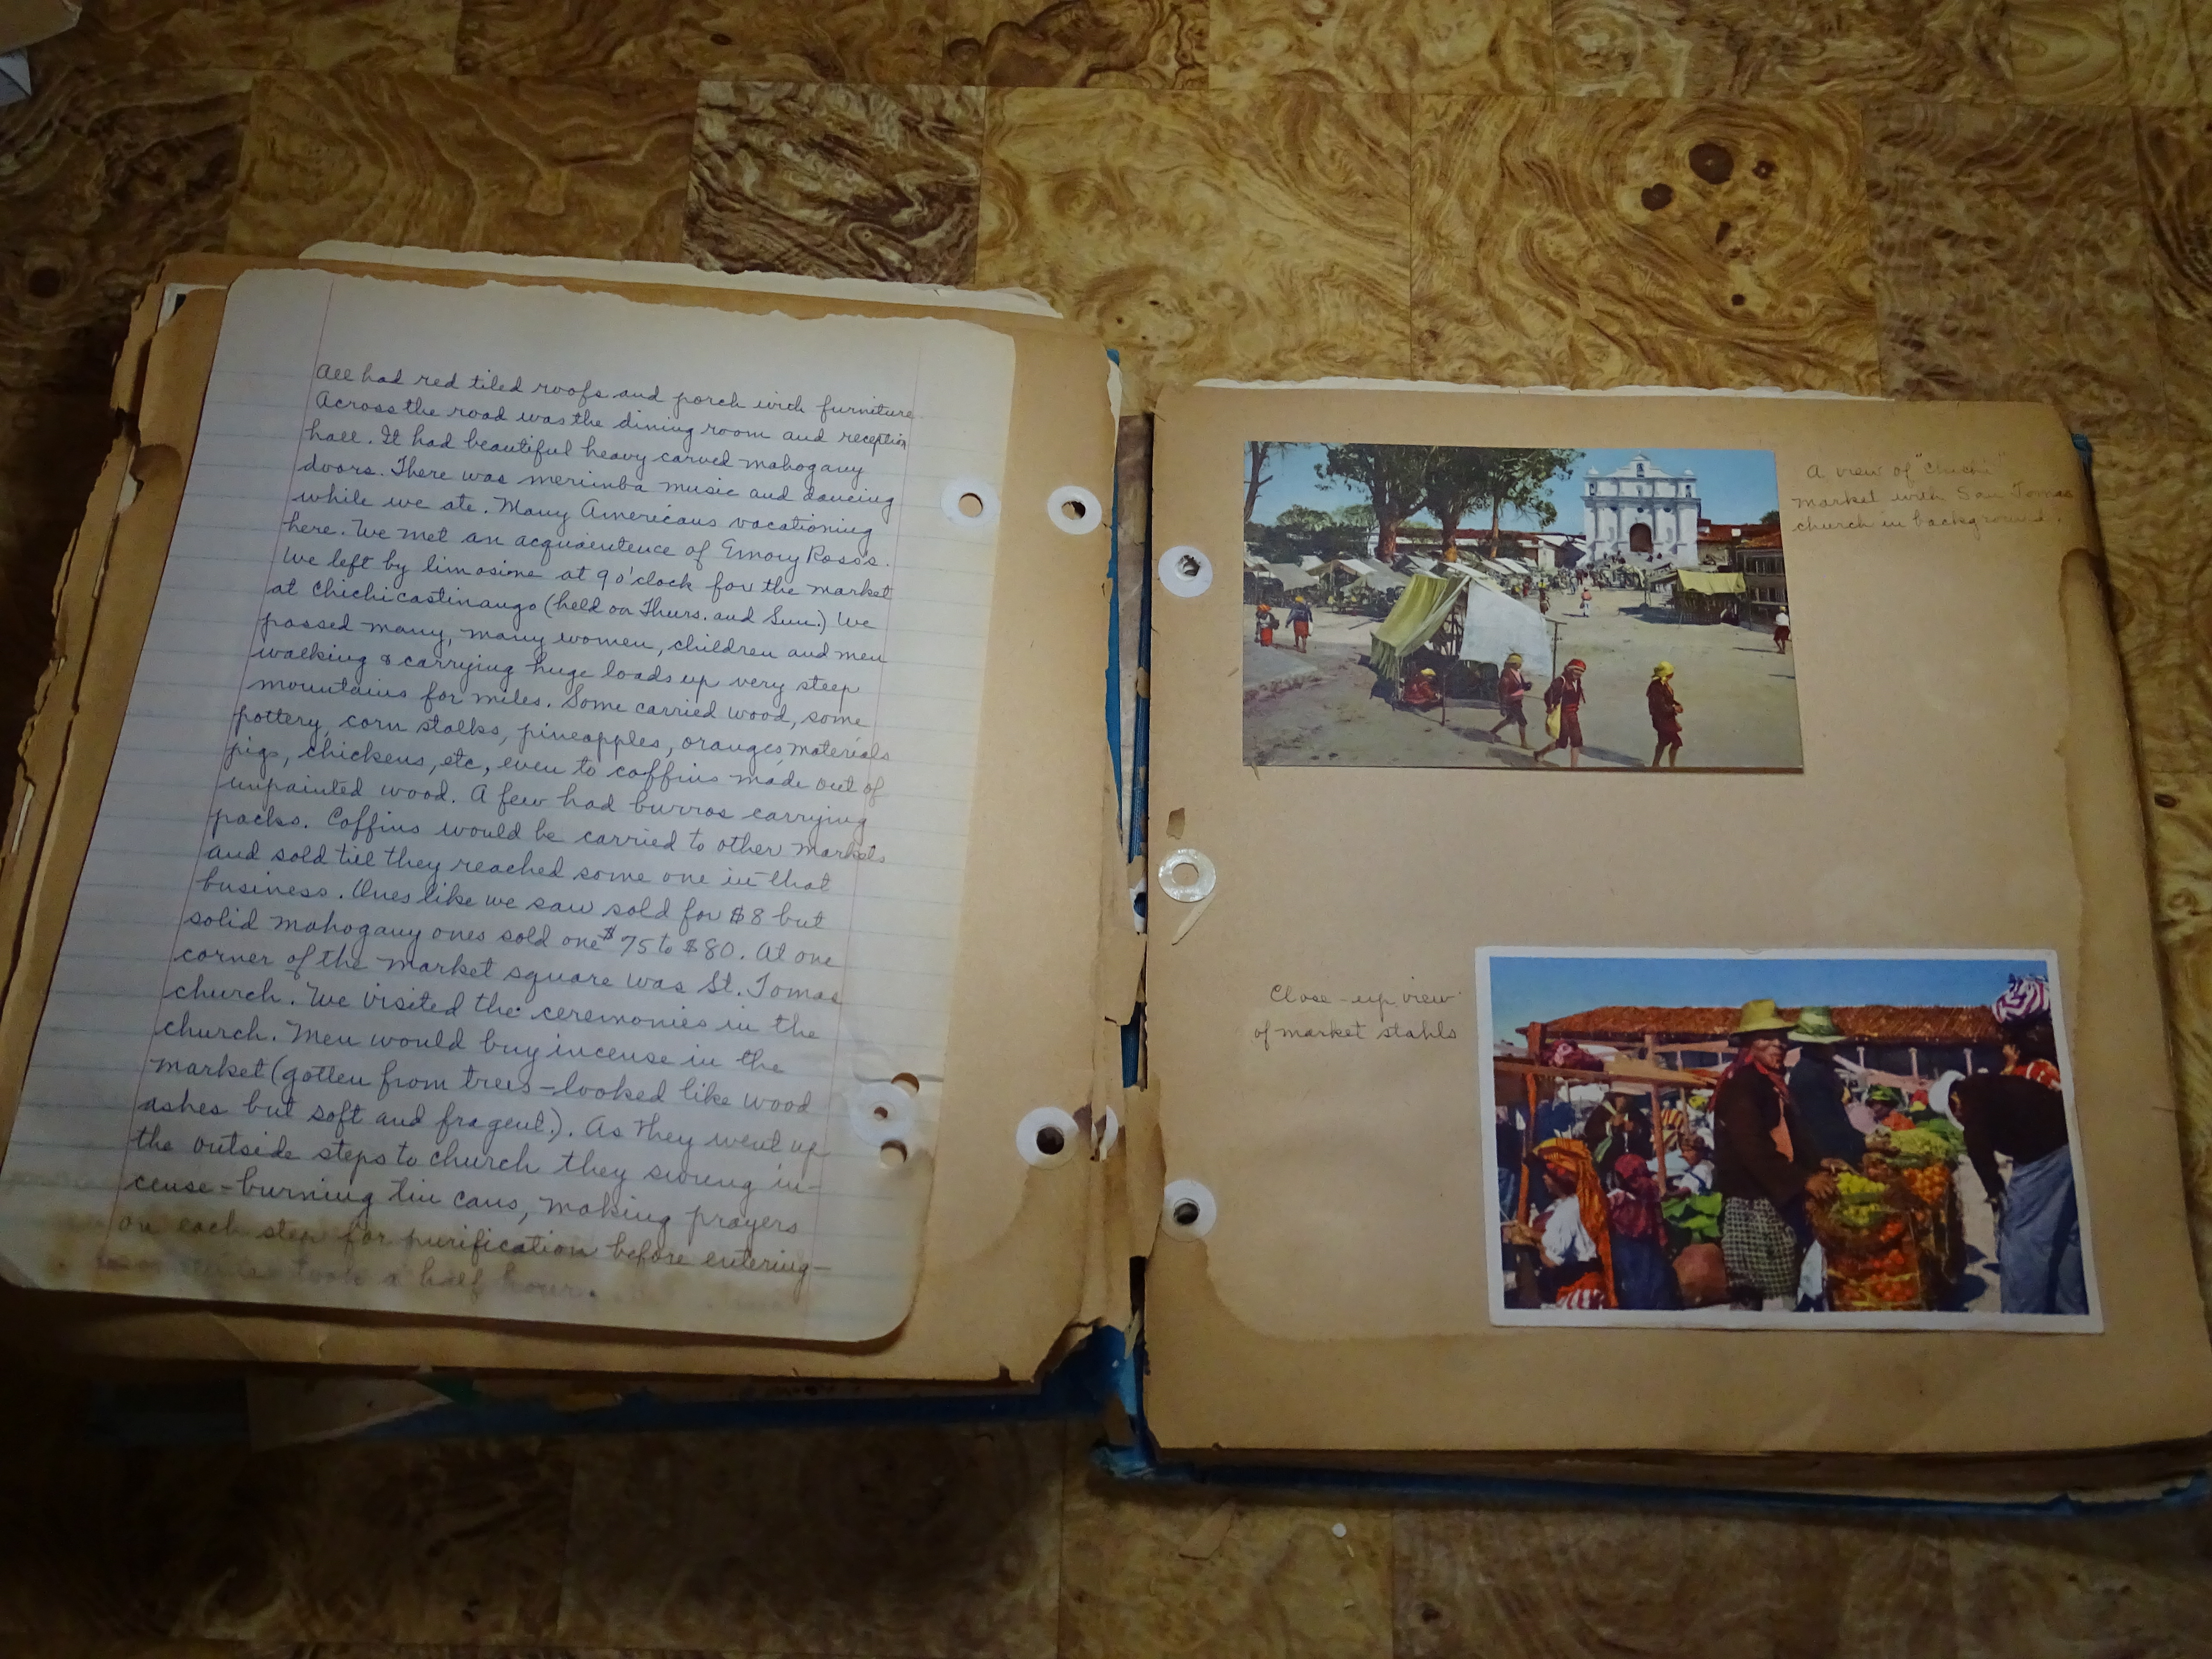 All had red tiled roofs and porch with furniture
Across the road was the dining room and reception
hall. It had beautiful heavy carved mahogany
doors. There was merimba music and dancing
while we ate. Many Americans vacationing
here. We met an acquaentence of Emory Ross's.
We left by limosine at 9 o'clock for the market
at Chichicastinango (held on Thurs. and Sun.) We
passed many, many women, children and men
walking & carrying huge loads up very steep
mountains for miles. Some carried wood, some
pottery, corn stalks, pineapples, oranges, materials
pigs, chickens, etc, even to coffins made out of
unpainted wood. A few had burros carrying
packs. Coffins would be carried to other markets
and sold till they reached some one in that
business. Ones like we saw sold for $8 but
solid mahogany ones sold one $75 to $80. At one
corner of the market square was St. Tomas
church. We visited the ceremonies in the
church. Men would buy incense in the
market (gotten from trees - looked like wood
ashes but soft and fragent.). As they went up
the outside steps to church they swung in-
cense-burning tin cans, making prayers
on each step for purification before entering-
took a half hour.
A view of "Chichi"
market with San Tomas
church in background.
Close-up view
of market stahls